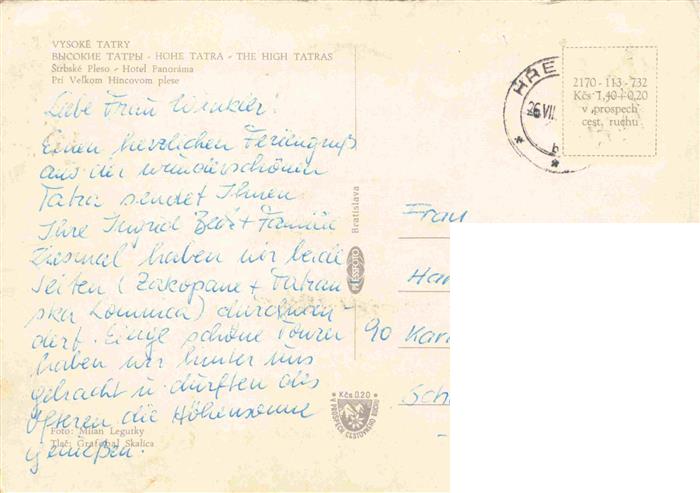 VYSOKÉ TATRY
ВЫСОКИЕ ТАТРЫ - HOHE TATRA - THE HIGH TATRAS
Štrbské Pleso - Hotel Panoráma
Pri Veľkom Hincovom plese
2170 - 113 - 732
Kčs 1,40+0,20
v „prospech
cest. ruchu
HŘE
26.VII.
b
Liebe Frau Winkler!
Einen herzlichen Feriengruß
aus der wunderschönen
Tatra sendet Ihnen
Ihre Ingrid + Familie
Diesmal haben wir beide
Seiten (Zakopane + Tatran
ska Lomnica) durchwan-
dert. Einige schöne Touren
haben wir hinter uns
gebracht u. durften des
Öfteren die Höhensonne
genießen.
Frau
Kar
90
Sch
Bratislava
PRESSFOTO
Kčs 0.20
V PROSPECH CESTOVNÉHO RUCHU
Foto: Milan Legutky
Tlač: Grafobal Skalica